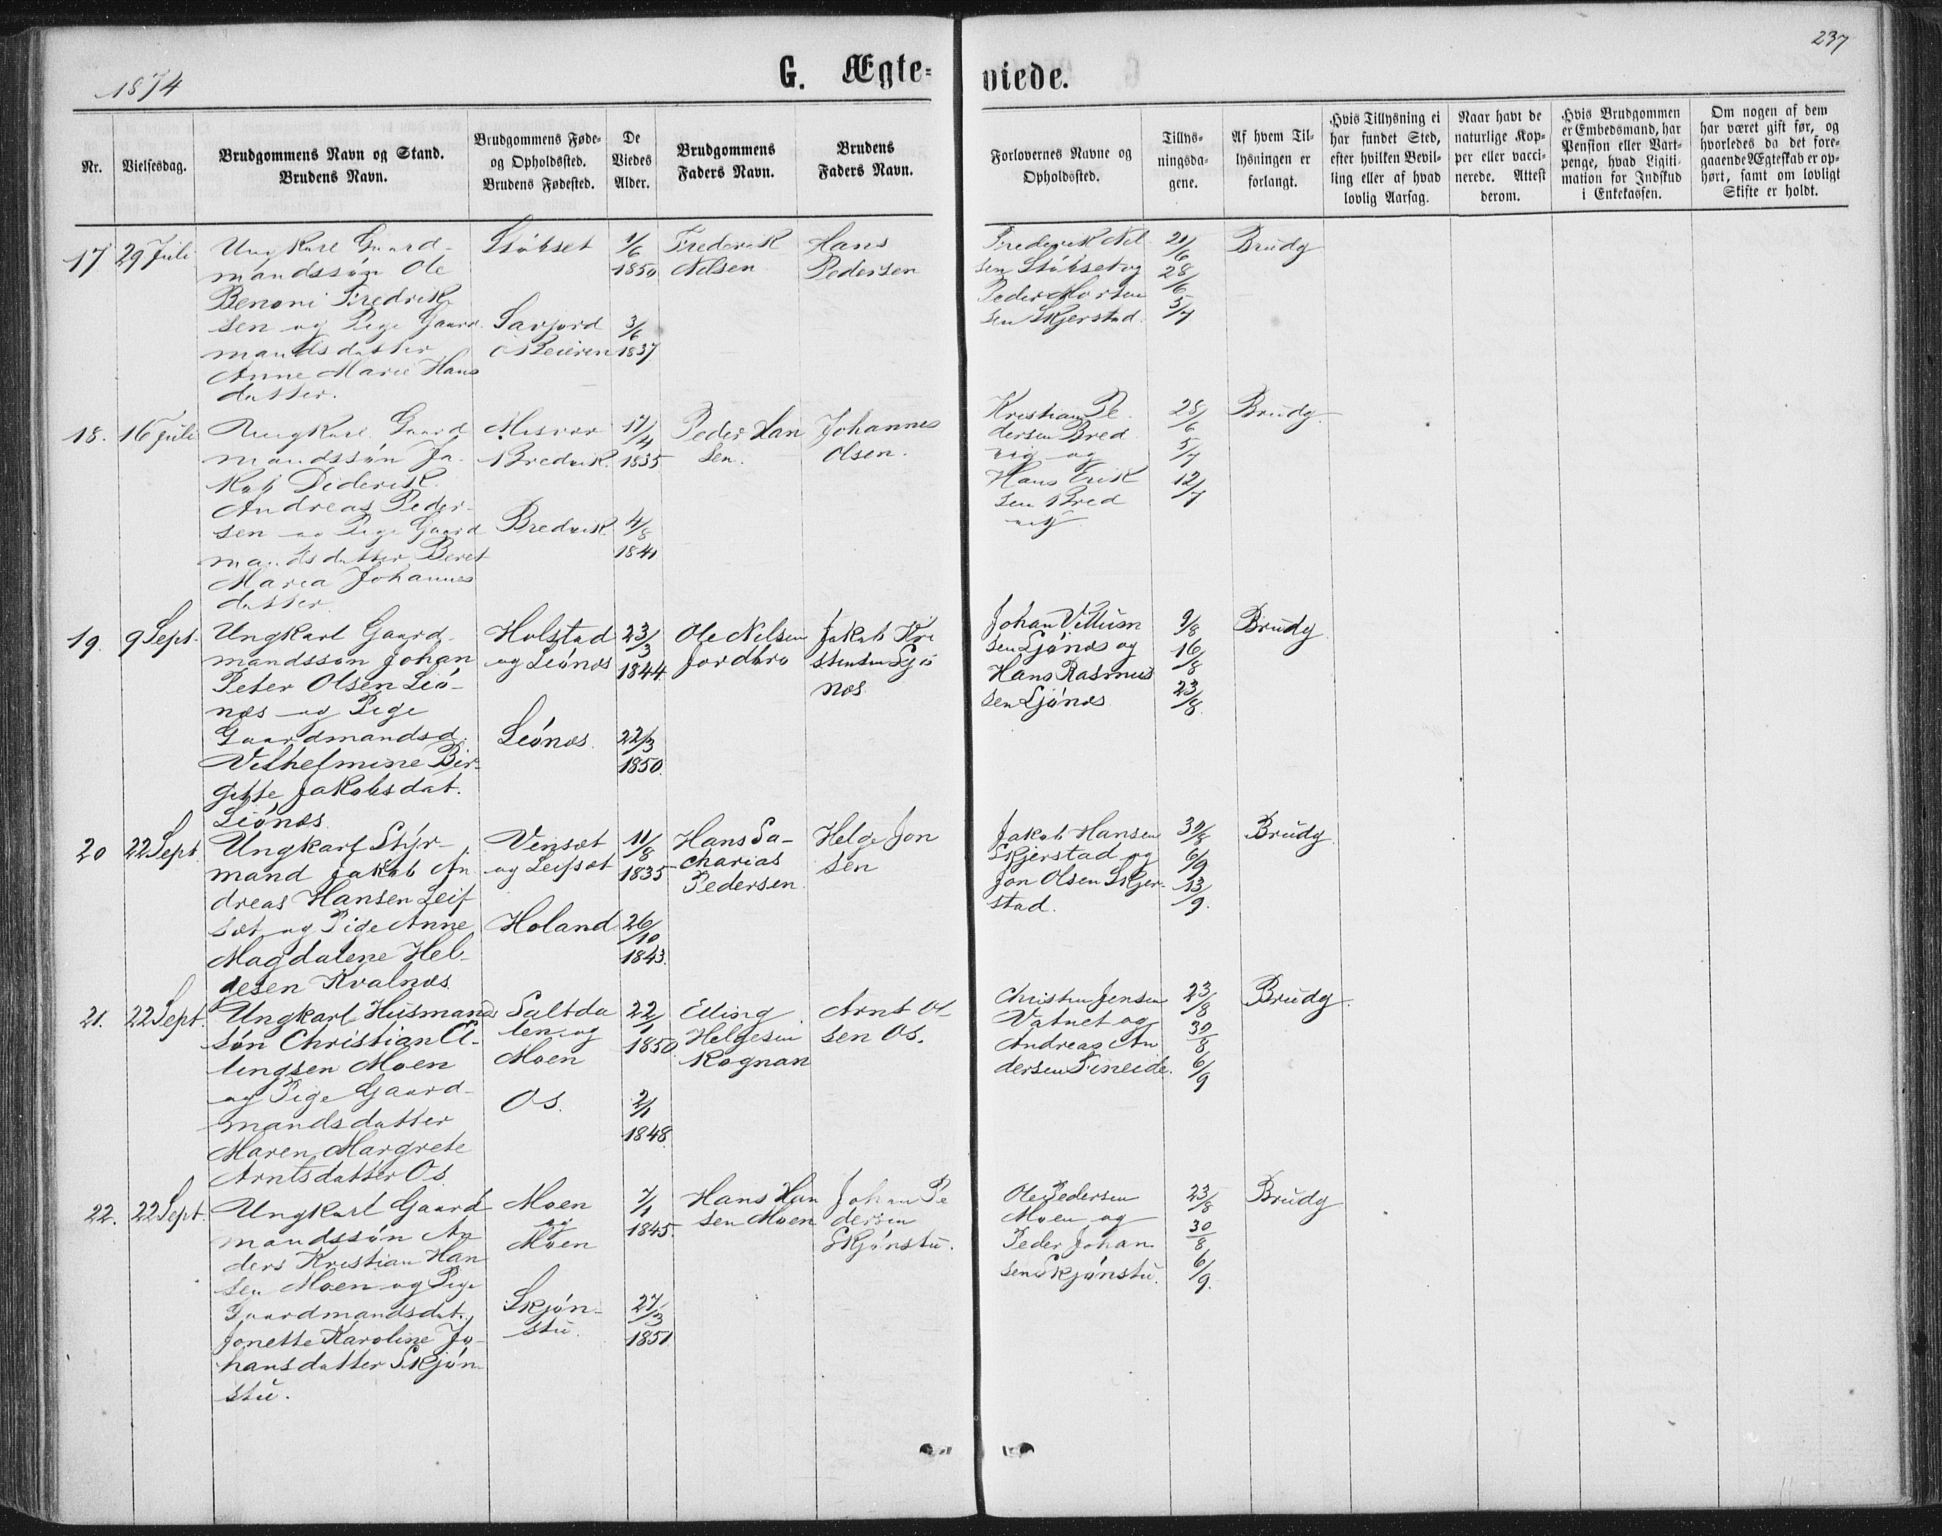 1874
G. Ægte=
viede.
237
Nr.
Vielsesdag.
Brudgommens Navn og Stand.
Brudens Navn.
Brudgommens Føde-
og Opholdssted.
Brudens Fødested.
De
Viedes
Alder.
Brudgommens
Faders Navn.
Brudens
Faders Navn.
Forlovernes Navne og
Opholdssted.
Tillys-
ningsda-
gene.
Af hvem Til-
lysningen er
forlangt.
Hvis Tillysning ei
har fundet Sted,
efter hvilken Bevil-
ling eller af hvad
lovlig Aarsag.
Naar havt de
naturlige Kop-
per eller vacci-
nerede. Attest
derom.
Hvis Brudgommen
er Embedsmand, har
Pension eller Vart-
penge, hvad Ligiti-
mation for Indskud
i Enkekassen.
Om nogen af dem
har været gift før, og
hvorledes da det fore-
gaaende Ægteskab er op-
hørt, samt om lovligt
Skifte er holdt.
17
29 Juli
Ungkarl Gaard-
mandssøn Ole
Benoni Fredrik
sen og Pige Gaard
mandsdatter
Anne Marie Hans
datter.
Støbset
1/6
1850
Saxfjord
i Beieren
3/6
1837
Frederik
Nilsen
Hans
Pedersen
Frederik Nil
sen Støbset og
Peder Morten
sen Skjerstad
21/6
28/6
5/7
Brudg
18.
16 Juli
Ungkarl Gaard
mandssøn Ja-
kob Diderik
Andreas Peder-
sen og Pige Gaard
mandsdatter Beret
Maria Johannes
datter.
Misvær
Bredvik.
17/4
1835
Bredvik
4/8
1841
Peder Han
sen.
Johannes
Olsen.
Kristian Pe
dersen Bred
vig og
Hans Erik
sen Bred
vig
28/6
5/7
12/7
Brudg.
19.
9 Sept.
Ungkarl Gaard-
mandssøn Johan
Peter Olsen Liø-
næs og Pige
Gaardmandsd.
Vilhelmine Bir-
gitte Jakobsdat.
Liønæs
Holstad
og Liønæs
23/3
1844.
Liønæs.
22/3
1850.
Ole Nilsen
Jordbro
Jakob Kri
stensen Ljø
næs.
Johan Villum
sen Ljønæs og
Hans Rasmus
sen Ljønæs
9/8
16/8
23/8
Brudg.
20
22 Sept.
Ungkarl Styr-
mand Jakob An
dreas Hansen Leif
sæt og Pige Anne
Magdalene Hel-
gesen Kvalnæs
Vensæt
og Leifsæt
11/8
1835
Holand
26/10
1843.
Hans Sa-
charias
Pedersen.
Helge Jon
sen
Jakob Hansen
Skjerstad og
Jon Olsen Skjer-
stad.
30/8
6/9
13/9.
Brudg.
21.
22 Sept.
Ungkarl Husmands
søn Christian E-
lingsen Moen
og Pige Gaard-
mandsdatter
Maren Margrete
Arntsdatter Os.
Saltda
len og
Moen
22/1
1850.
Os.
2/1
1848.
Eling
Helgesen
Rognan
Arnt Ol
sen Os.
Christen Jensen
Vatnet og
Andreas An
dersen Fineide.
23/8
30/8
6/9
Brudg.
22.
22 Sept.
Ungkarl Gaard
mandssøn An
ders Kristian Han
sen Moen og Pige
Gaardmandsdat.
Jonette Karoline Jo-
hansdatter Skjøn-
stu.
Moen
og
Moen
7/1
1845.
Skjøn-
stu.
27/3
1851
Hans Han
sen Moen
Johan Pe
dersen
Skjønstu.
Ole Pedersen
Moen og
Peder Johan
sen Skjønstu.
23/8
30/8
6/9.
Brudg